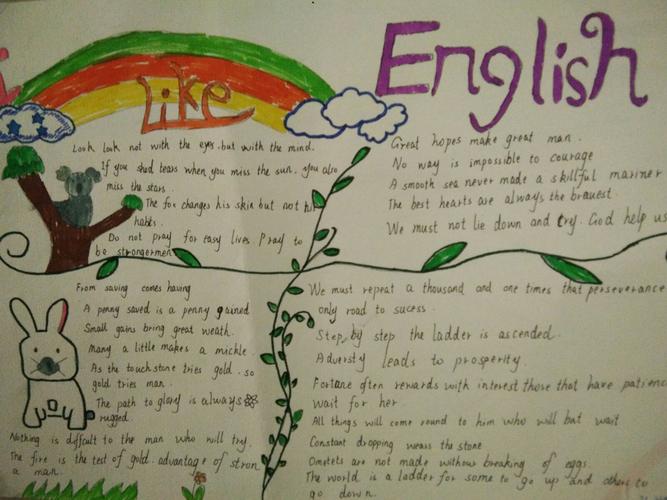 i Like English
Look look not with the eyes, but with the mind.
If you shed tears when you miss the sun, you also
miss the stars.
The fox changes his skin but not his
habits.
Do not pray for easy lives. Pray to
be strongermen
Great hopes make great man.
No way is impossible to courage
A smooth sea never made a skillful mariner
The best hearts are always the bravest.
We must not lie down and cry. God help us
From saving comes having
A penny saved is a penny gained
Small gains bring great weath.
Many a little makes a mickle.
As the touchstone tries gold. so
gold tries man.
The path to glory is always
rugged.
Nothing is diffcult to the man who will try.
The fire is the test of gold. advantage of stron
a man.
We must repeat a thousand and one times that perseverance
only road to sucess.
Step by step the ladder is ascended.
Adversty leads to prosperity.
Fortane often rewards with interest those that have patienc
wait for her.
All things will come round to him who will but wait
Constant dropping wears the stone
Omelets are not made withour breaking of eggs
The world is a ladder for some to go up and others to
go down.